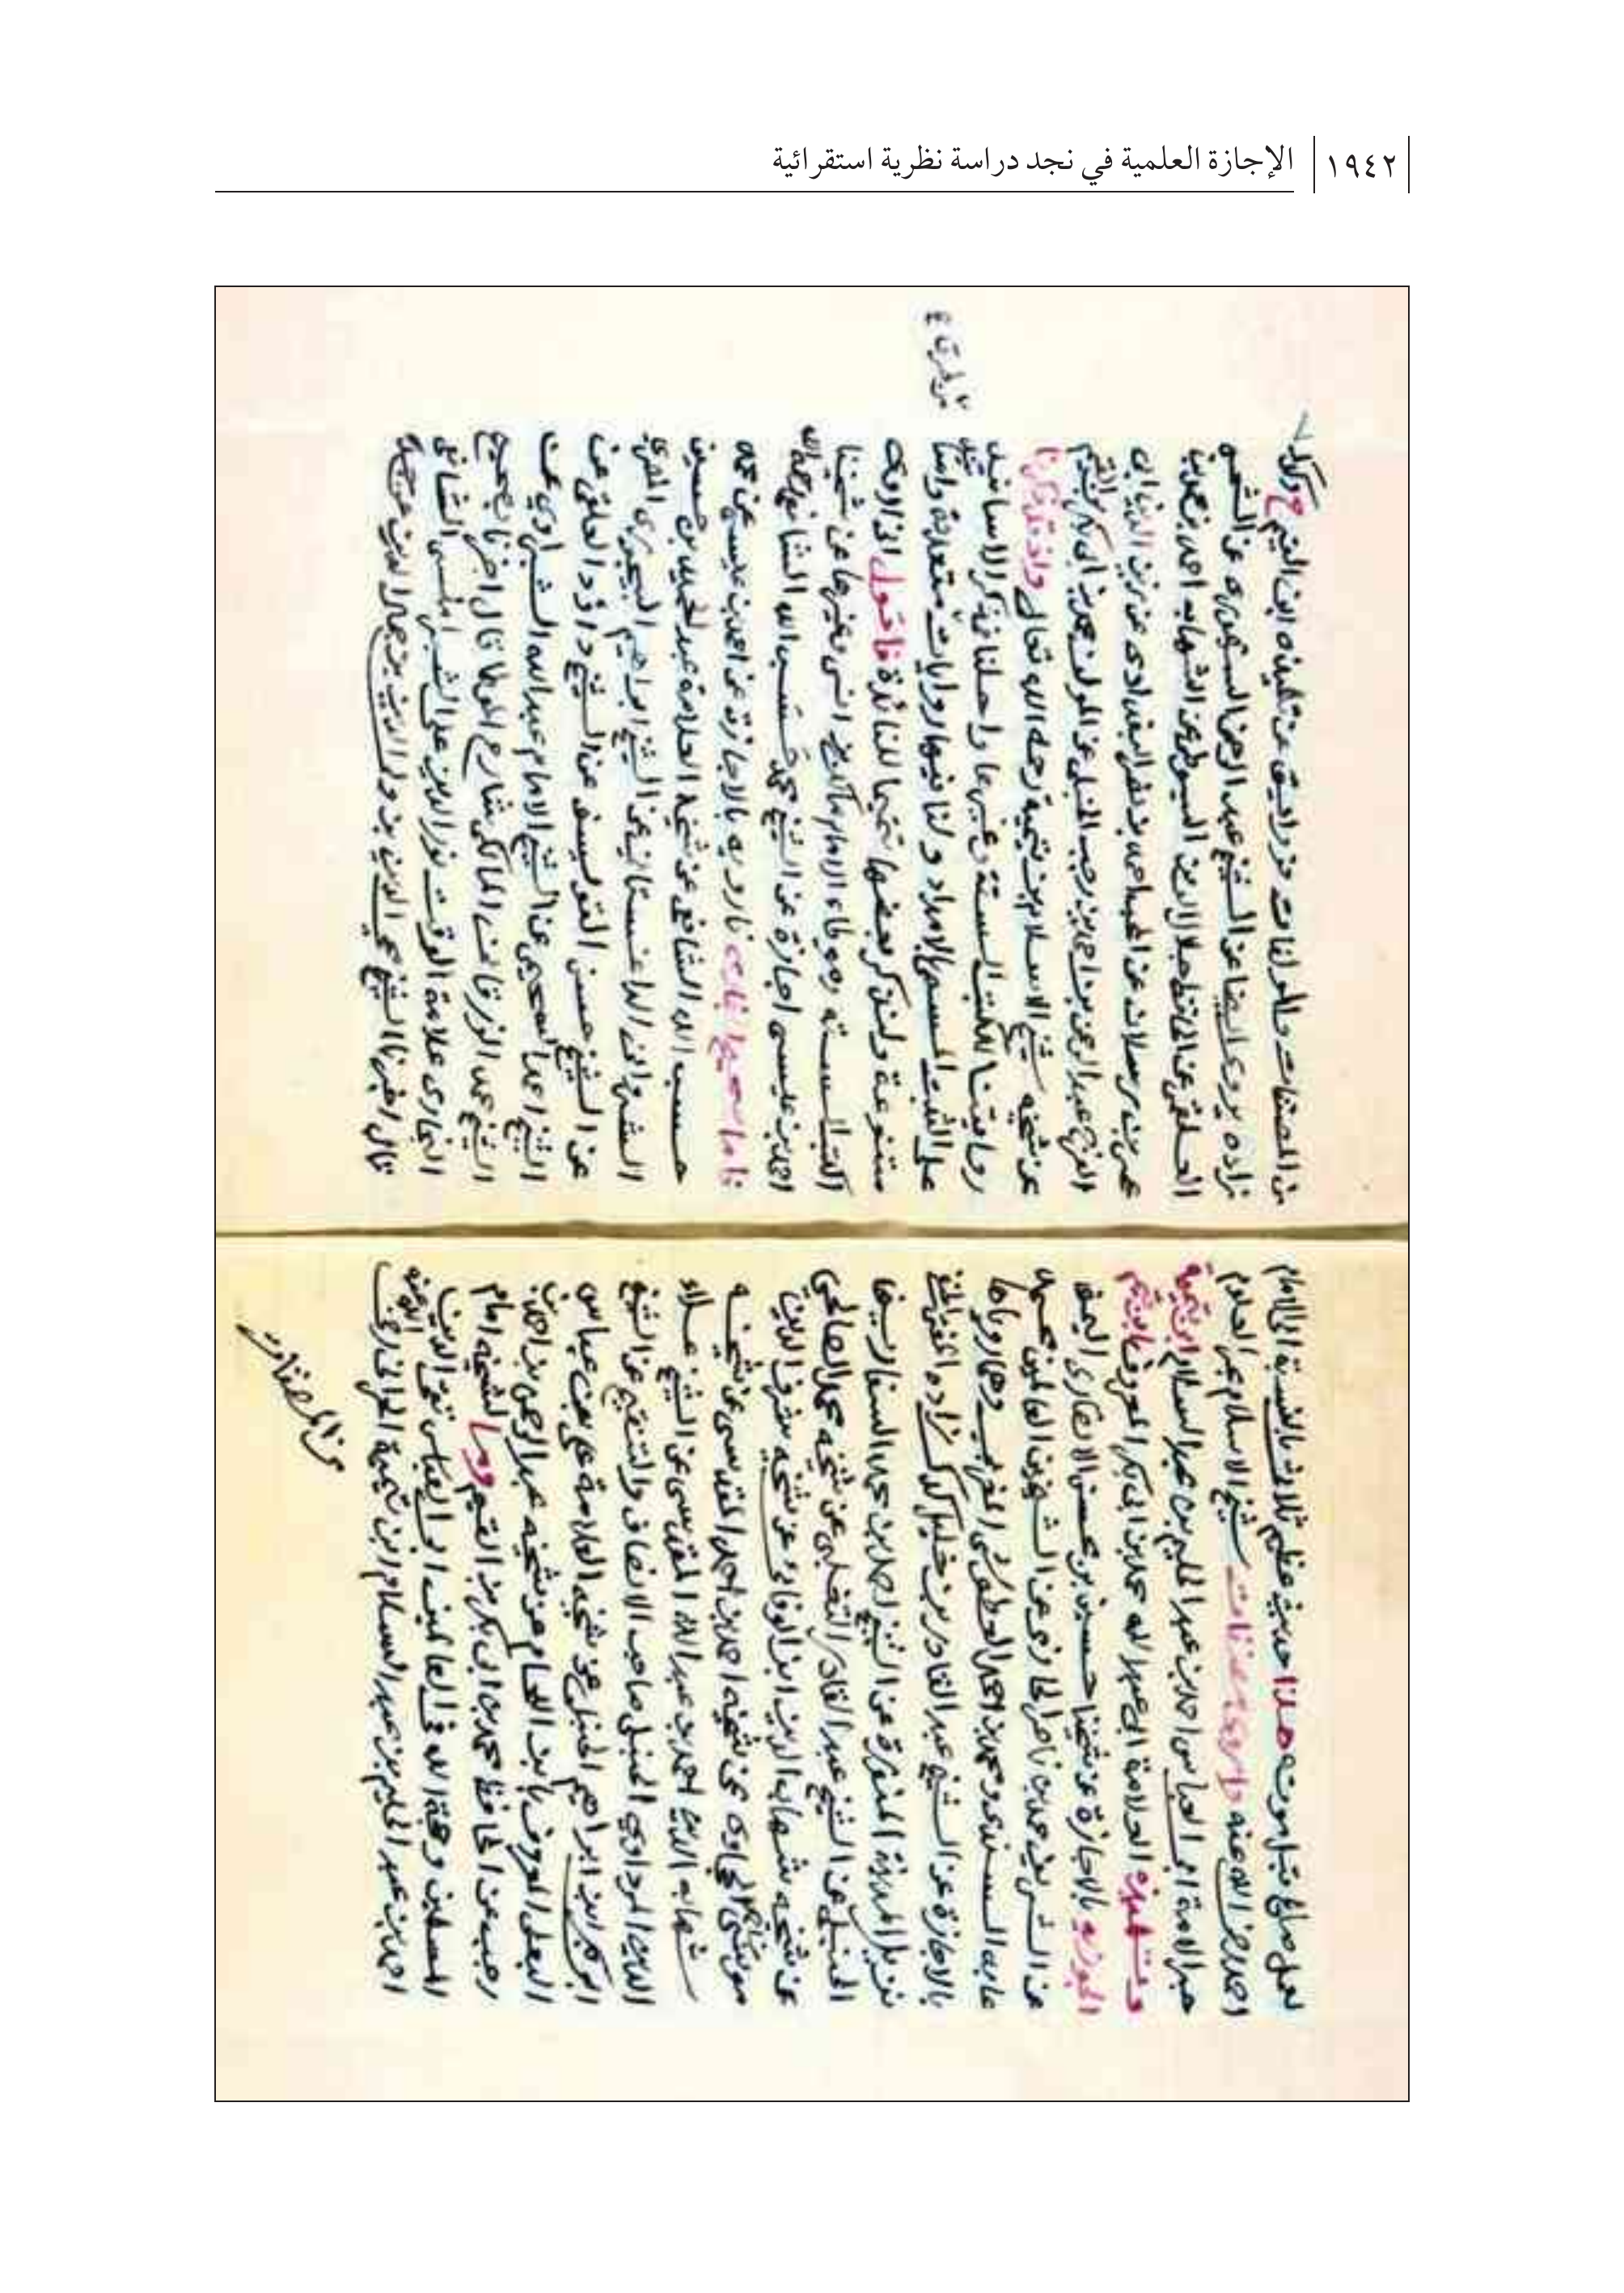 ١٩٤٢
الإجازة العلمية في نجد دراسة نظرية استقرائية
صالح قبل موته هذا حديث عظيم ثلاثي بالنسبة الى الامام
احمد رضي الله عنه واروي مصنفات شيخ الاسلام بحر العلوم
حبر الامة ابي العباس احمد بن عبد الحليم بن عبد السلام ابن تيمية
وتلميذه العلامة ابي عبد الله محمد بن ابي بكر المعروف بابن قيم
الجوزيه بالاجازة عن شيخنا حسين بن محسن الانصاري اليمني
عن الشريف محمد بن ناصر الحازمي عن الشيخين العالمين محمد
عابد السندي ومحمد بن احمد العطوشي المغربي وهما روياها
بالاجازة عن الشيخ عبد القادر بن خليل كدك زاده
نزيل المدينة المنورة عن الشيخ احمد بن محمد السفاريني
الحنبلي عن الشيخ عبد القادر التغلبي عن شيخه محمد
عن شيخه شهاب الدين ابن الوفائي عن شيخه شرف الدين
موسى الحجاوي عن شيخه احمد بن احمد المقدسي عن شيخه
شهاب الدين احمد بن عبد الله المقدسي عن الشيخ علاء
الدين المرداوي الحنبلي صاحب الانصاف والتنقيح عن الشيخ
ابي بكر ابن ابراهيم الحنبلي عن شيخه العلامة علي بن عباس
البعلي المعروف بابن اللحام عن شيخه عبد الرحمن بن احمد بن
رجب عن الحافظ محمد بن ابي بكر بن القيم لشيخه امام
المصلحين وحجة الله في العالمين ابو العباس تقي الدين
احمد بن عبد الحليم بن عبد السلام ابن تيمية الحراني رضي الله عنه
من المصنفات
من المصنفات والمولفات عن تلميذه ابن القيم ح وكدك
زاده يروي ايضا عن الشيخ عبد الرحمن عن الشمس
العلقمي عن الحافظ جلال الدين السيوطي عن الشهاب احمد بن محمد بن
عمر بن رسلان عن المحب احمد بن نصر البغدادي عن زين الدين ابي
الفرج عبد الرحمن بن احمد بن رجب الحنبلي عن المولف محمد بن ابي بكر بن القيم
عن شيخه شيخ الاسلام بن تيمية رحمه الله تعالى واذ قد ذكرنا
روايتنا للكتب الستة وغيرها واحلنا في ذكر الاسانيد
على الثبت المسمى الامداد ولنا فيها روايات متعددة واسانيد
متنوعة ولنذكر بعضها تتميما للفائدة فاقول اني ارويت
الكتب الستة وموطاء الامام مالك بن انس وغيرها عن شيخنا
احمد بن عيسى اجازة عن الشيخ محمد حسب الله الشافعي رحمه الله
فاما صحيح البخاري فارويه بالاجازة عن احمد بن عيسى عن محمد
حسب الله الشافعي عن شيخه العلامة عبد الحميد بن حسين
الشرواني الداغستاني عن الشيخ ابراهيم البيجوري المصري
عن الشيخ حسن القويسني عن الشيخ داؤد القلعي عن
الشيخ احمد السحيمي عن الشيخ الامام عبد الله الشبراوي عن
الشيخ محمد الزرقاني المالكي شارح الموطا قال اخبرنا بصحيح
البخاري علامة الوقت نور الدين علي الشبراملسي الشافعي
قال اخبرنا الشيخ